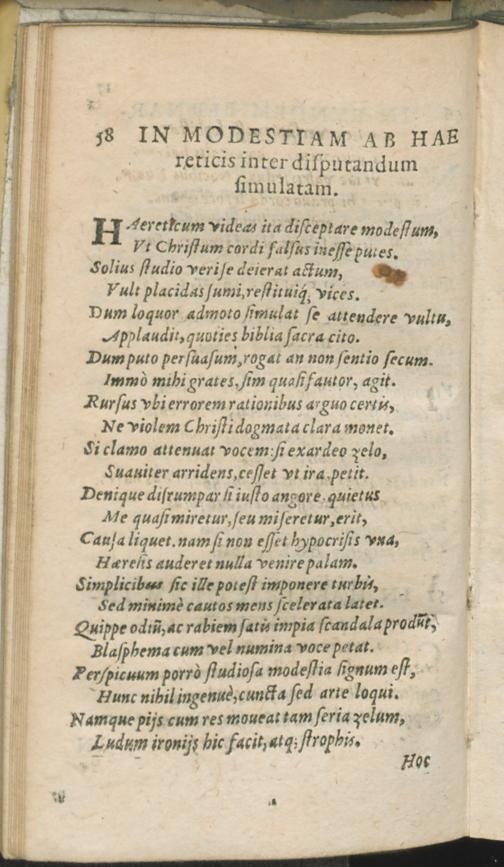 58 IN MODESTIAM AB HAE
reticis inter diſputandum
ſimulatam.
HAereticum videas ita diſceptare modeſtum,
Vt Chriſtum cordi falſus ineſſe putes.
Solius ſtudio veri ſe deierat actum,
Vult placidas ſumi, reſtituiq́, vices.
Dum loquor admoto ſimulat ſe attendere vultu,
Applaudit, quoties biblia ſacra cito.
Dum puto perſuaſum, rogat an non ſentio ſecum.
Immò mihi grates, ſim quaſi fautor, agit.
Rurſus vbi errorem rationibus arguo certis,
Ne violem Chriſti dogmata clara monet.
Si clamo attenuat vocem: ſi exardeo zelo,
Suauiter arridens, ceſſet vt ira, petit.
Denique diſrumpar ſi iuſto angore, quietus
Me quaſi miretur, ſeu miſeretur, erit,
Cauſa liquet. nam ſi non eſſet hypocriſis vna,
Hæreſis auderet nulla venire palam.
Simplicibus ſic ille poteſt imponere turbis,
Sed minimè cautos mens ſcelerata latet.
Quippe odiũ, ac rabiem ſatis impia ſcandala produ͂t,
Blaſphema cum vel numina voce petat.
Perſpicuum porrò ſtudioſa modeſtia ſignum eſt,
Hunc nihil ingenuè, cuncta ſed arte loqui.
Namque pijs cum res moueat tam ſeria zelum,
Ludum ironijs hic facit, atq; ſtrophis.
Hoc